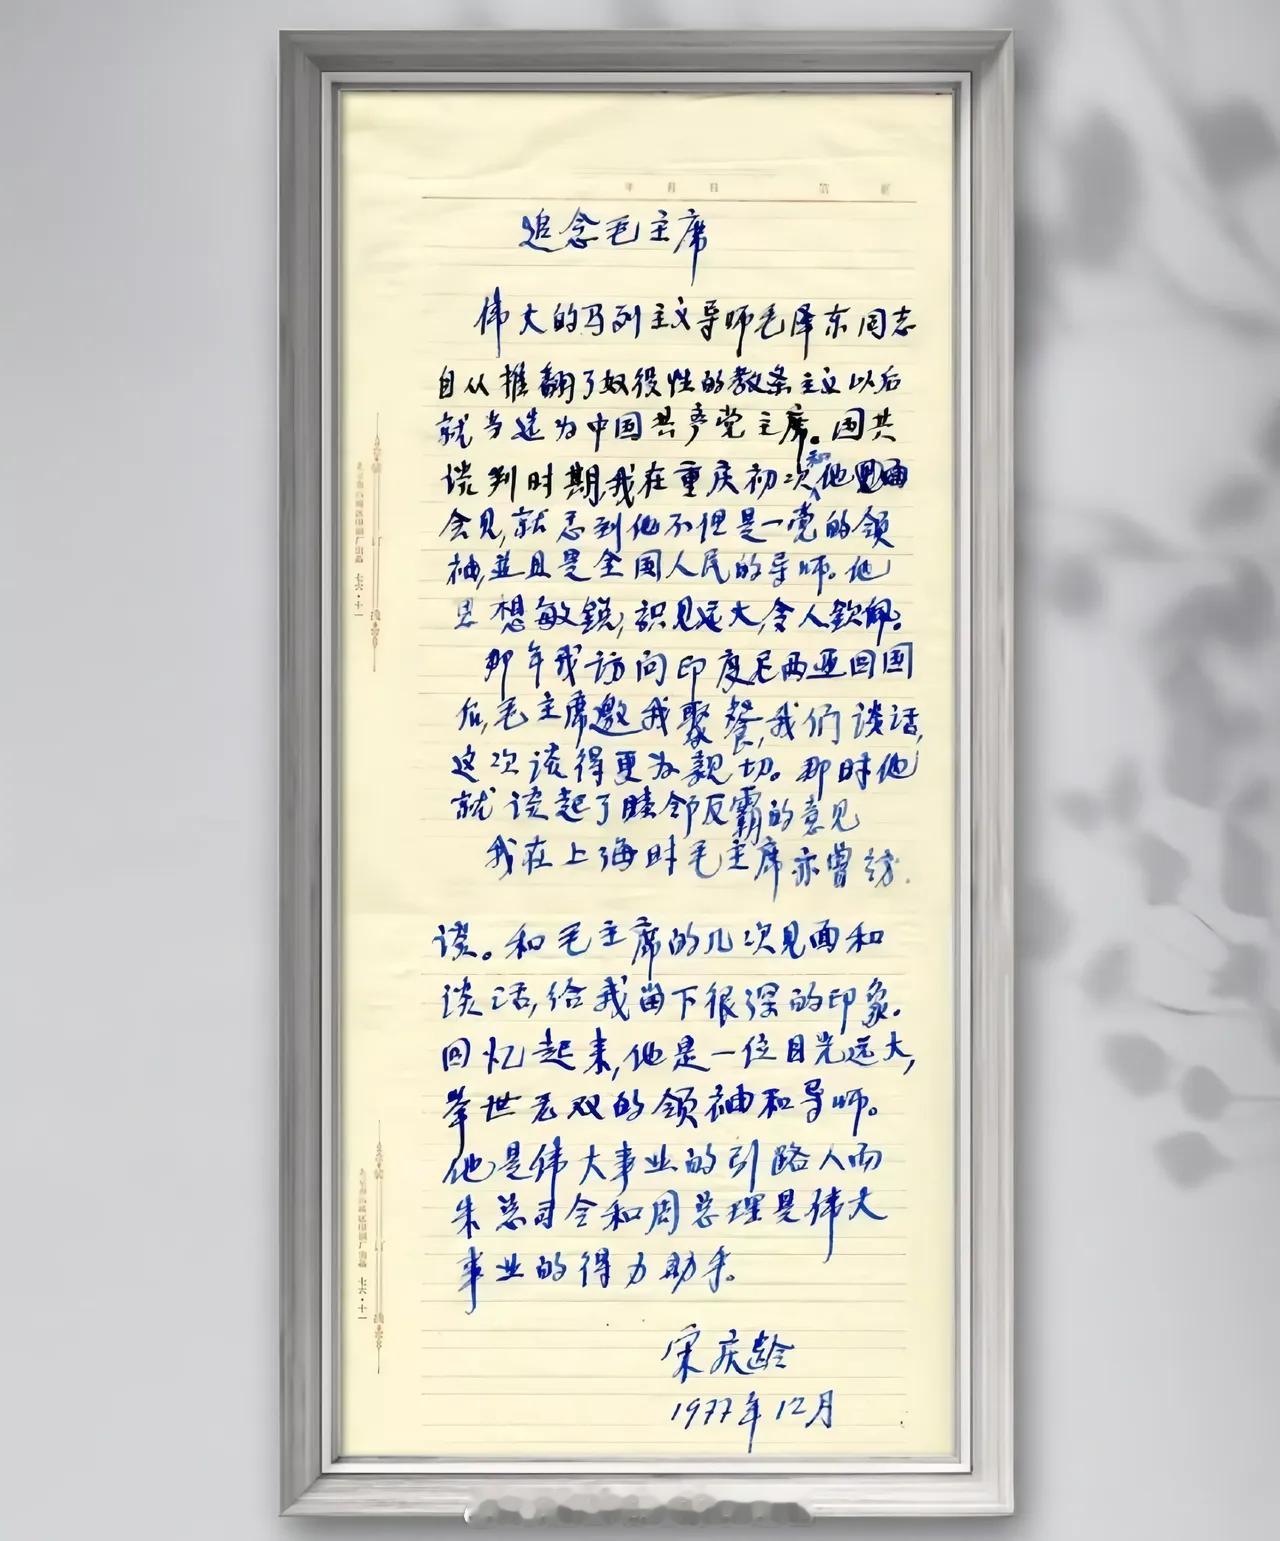 年 月 日
追念毛主席
伟大的马列主义导师毛泽东同志
自从推翻了奴役性的教条主义以后
就当选为中国共产党主席。国共
谈判时期,我在重庆初次和他
会见,就忌到他不但是一党的领
袖,並且是全国人民的导师。他
思想敏锐,识见远大,令人钦佩。
那年我访问印度尼西亚回国
后,毛主席邀我聚餐,我们谈话,
这次谈得更为親切。那时他
就谈起了睦邻反霸的意见
我在上海时毛主席亦曾訪
谈。和毛主席的几次见面和
谈话,给我留下很深的印象。
回忆起来,他是一位目光远大,
举世无双的领袖和导师。
他是伟大事业的引路人而
朱总司令和周总理是伟大
事业的得力助手。
宋庆龄
1977年12月
七六·十一
七六·十一